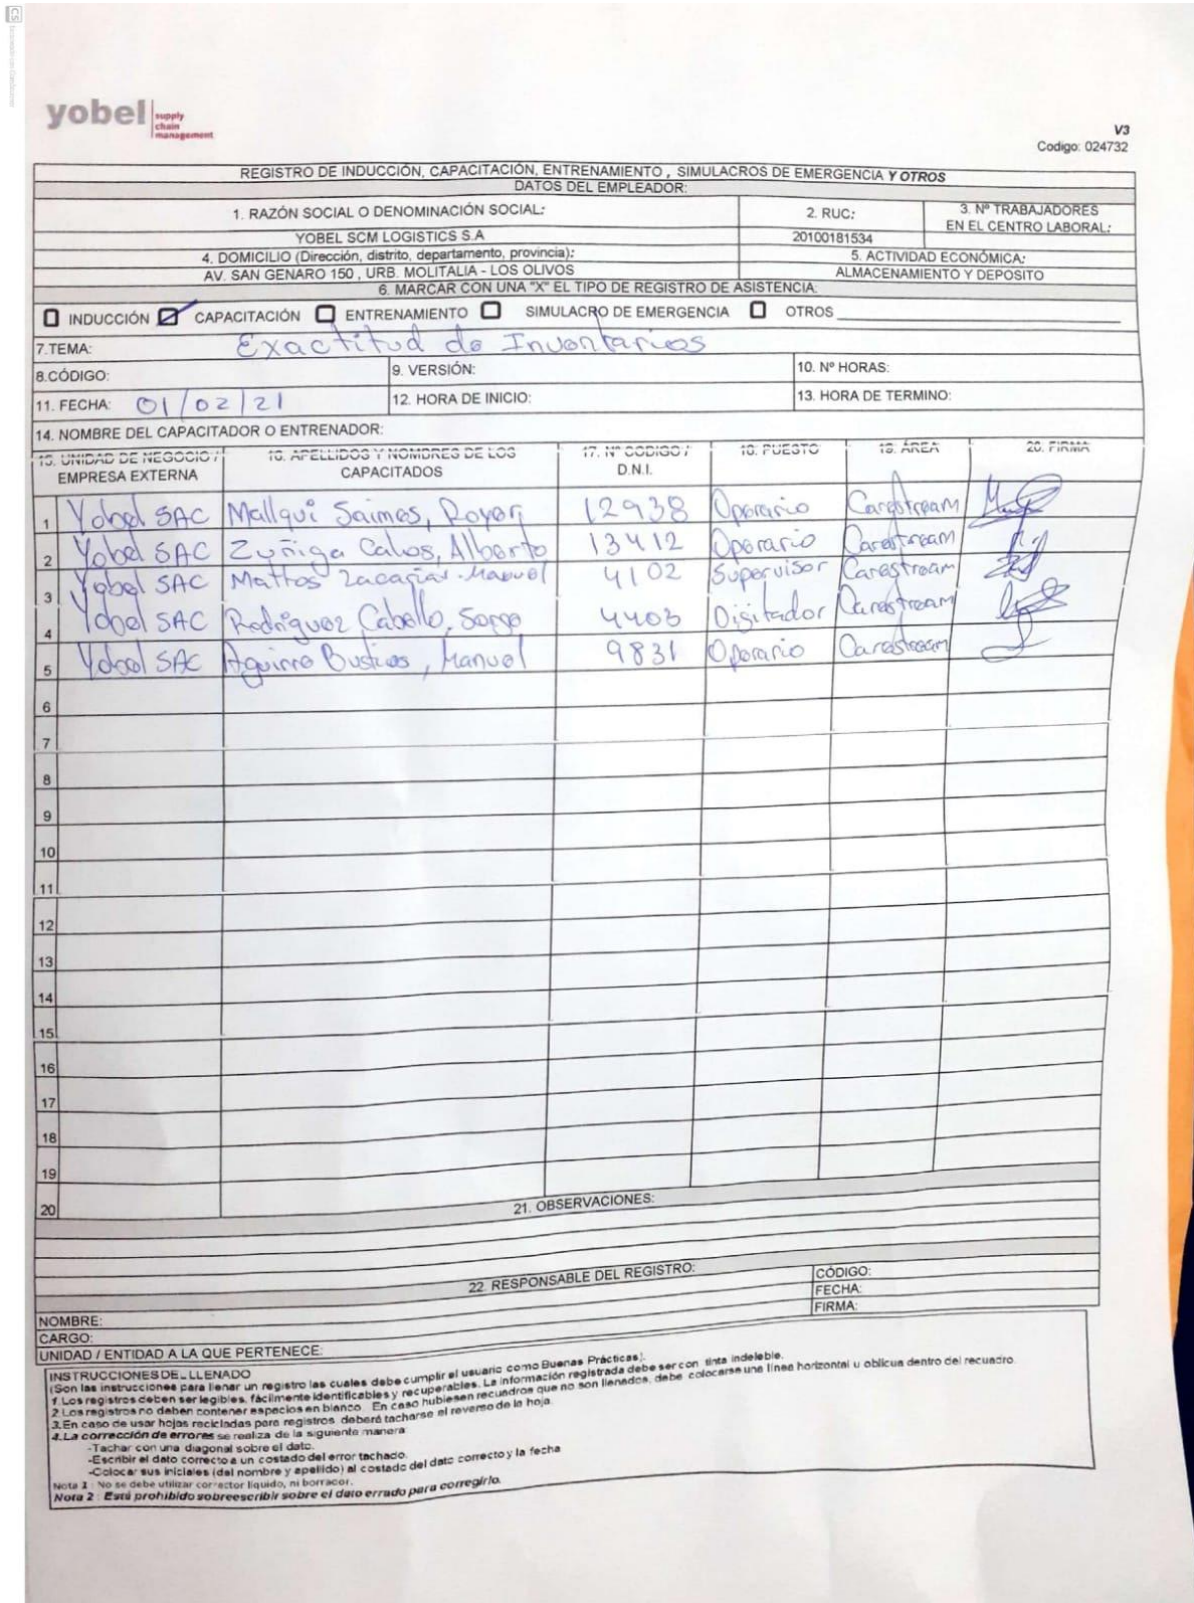 CS
yobel supply
chain
management
V3
Codigo: 024732
REGISTRO DE INDUCCIÓN, CAPACITACIÓN, ENTRENAMIENTO , SIMULACROS DE EMERGENCIA Y OTROS
DATOS DEL EMPLEADOR:
1. RAZÓN SOCIAL O DENOMINACIÓN SOCIAL: 2. RUC: 3. Nº TRABAJADORES
EN EL CENTRO LABORAL:
YOBEL SCM LOGISTICS S.A 20100181534
4. DOMICILIO (Dirección, distrito, departamento, provincia): 5. ACTIVIDAD ECONÓMICA:
AV. SAN GENARO 150 , URB. MOLITALIA - LOS OLIVOS ALMACENAMIENTO Y DEPOSITO
6. MARCAR CON UNA "X" EL TIPO DE REGISTRO DE ASISTENCIA:
INDUCCIÓN CAPACITACIÓN ENTRENAMIENTO SIMULACRO DE EMERGENCIA OTROS
7.TEMA: Exactitud de Inventarios
8.CÓDIGO: 9. VERSIÓN: 10. Nº HORAS:
11. FECHA: 01/02/21 12. HORA DE INICIO: 13. HORA DE TERMINO:
14. NOMBRE DEL CAPACITADOR O ENTRENADOR:
15. UNIDAD DE NEGOCIO / 16. APELLIDOS Y NOMBRES DE LOS 17. Nº CODIGO / 18. PUESTO 19. ÁREA 20. FIRMA
EMPRESA EXTERNA CAPACITADOS D.N.I.
1 Yobel SAC Mallqui Jaimes, Royer 12938 Operario Carestream
2 Yobel SAC Zuñiga Calvos, Alberto 13412 Operario Carestream
3 Yobel SAC Mattos Zacarias Manuel 4102 Supervisor Carestream
4 Yobel SAC Rodriguez Cabello, Jorge 4403 Digitador Carestream
5 Yobel SAC Aguirre Bustios, Manuel 9831 Operario Carestream
6
7
8
9
10
11
12
13
14
15
16
17
18
19
20
21. OBSERVACIONES:
22. RESPONSABLE DEL REGISTRO:
CÓDIGO:
FECHA:
NOMBRE: FIRMA:
CARGO:
UNIDAD / ENTIDAD A LA QUE PERTENECE:
INSTRUCCIONES DE LLENADO
(Son las instrucciones para llenar un registro las cuales debe cumplir el usuario como Buenas Prácticas).
1.Los registros deben ser legibles, fácilmente identificables y recuperables. La información registrada debe ser con tinta indeleble.
2.Los registros no deben contener espacios en blanco. En caso hubiesen recuadros que no son llenados, debe colocarse una línea horizontal u oblicua dentro del recuadro.
3.En caso de usar hojas recicladas para registros deberá tacharse el reverso de la hoja.
4.La corrección de errores se realiza de la siguiente manera:
-Tachar con una diagonal sobre el dato.
-Escribir el dato correcto a un costado del error tachado.
-Colocar sus iniciales (del nombre y apellido) al costado del dato correcto y la fecha
Nota 1 : No se debe utilizar corrector líquido, ni borrador.
Nota 2 : Está prohibido sobreescribir sobre el dato errado para corregirlo.